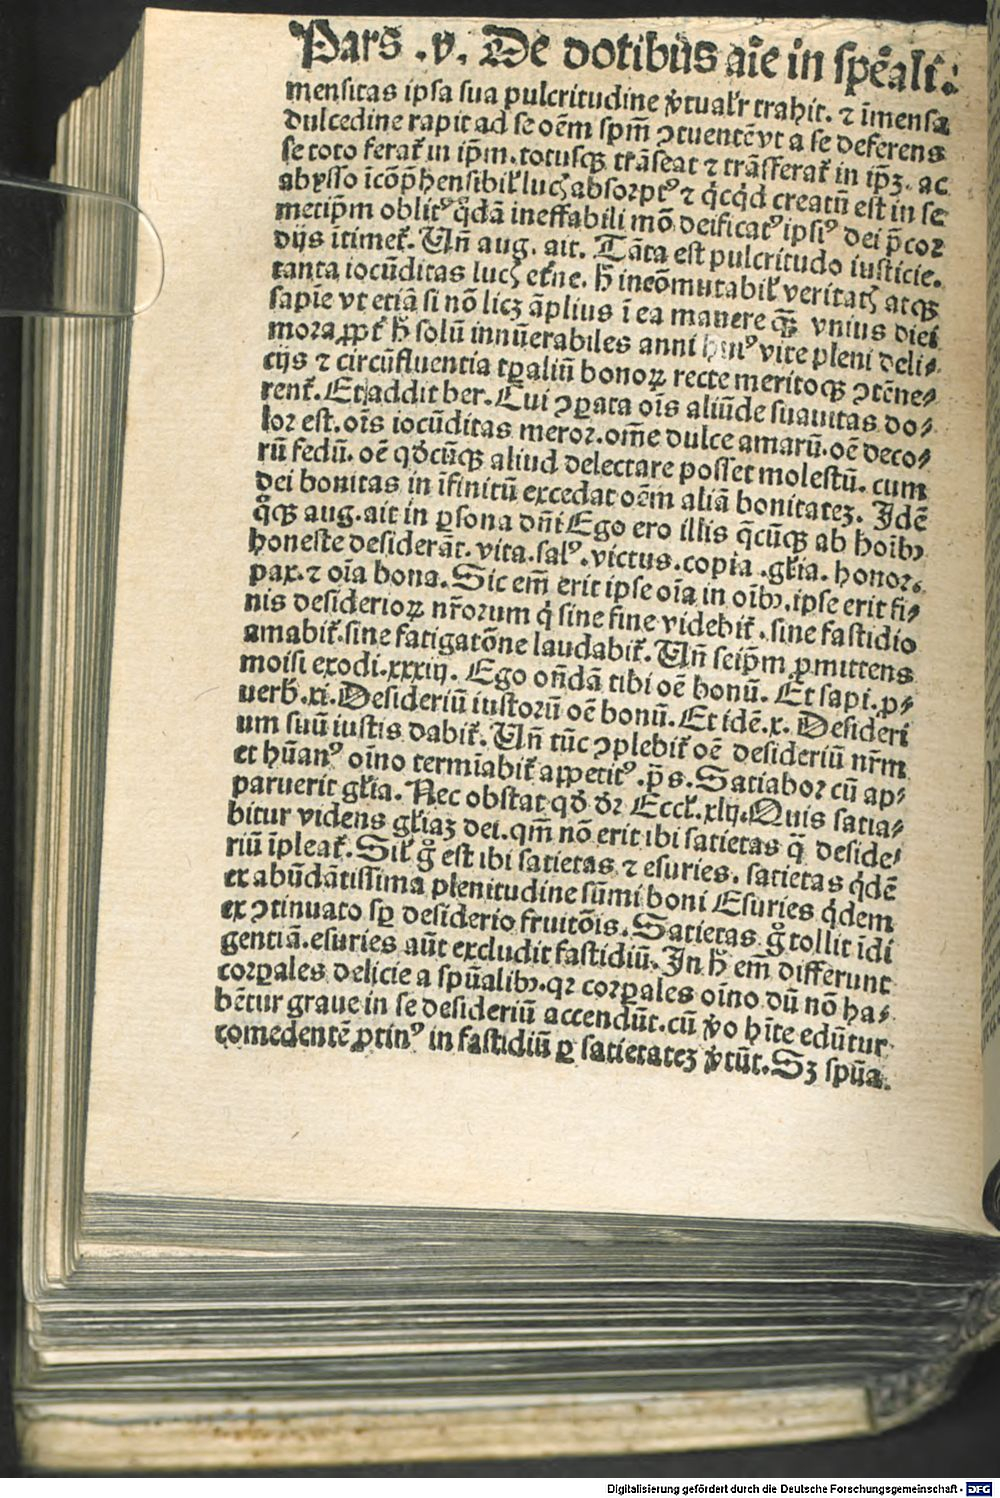 Pars .v. De dotibus aīe in spēali.
mensitas ipsa sua pulcritudine v̓tualr̓ trahit. ⁊ īmensa
dulcedine rapit ad se oēm spm̄ ↄtuentē vt a se deferens
se toto ferat̓ in ip̄m. totusqꝫ trāseat ⁊ trāsferat̓ in ip̄ꝫ. ac
abysso īcōp̄hensibil̓ lucꝭ absorptꝰ ⁊ q̇cq̇d creatū est in se
metip̄m oblitꝰ q̊dā ineffabili mō deificatꝰ ipsiꝰ dei p̄cor
dijs ītimet̓. Vn̄ aug. ait. Tāta est pulcritudo iusticie.
tanta iocūditas lucꝭ et̓ne. h̄ incōmutabil̓ veritatꝭ atqꝫ
sapiē vt etiā si nō licꝫ āplius ī ea manere qꝫ̄ vnius diei
mora ꝓpt̓ h̄ solū innūerabiles anni huiꝰ vite pleni deli⸗
cijs ⁊ circūfluentia tꝑaliū bonoꝝ recte meritoqꝫ ↄtēne⸗
rent̓. Et addit ber. Cui ↄꝑata oīs aliūde suauitas do⸗
lor est. oīs iocūditas meror. om̄e dulce amarū. oē deco⸗
rū fedū. oē qd̓cūqꝫ aliud delectare posset molestū. cum
dei bonitas in īfinitū excedat oēm aliā bonitateꝫ. Idē
q̊qꝫ aug. ait in ꝑsona dn̄i Ego ero illis q̄cūqꝫ ab hoībꝰ
honeste desiderāt. vita. salꝰ. victus. copia .gl̓ia. honor.
pax. ⁊ oīa bona. Sic em̄ erit ipse oīa in oībꝰ. ipse erit fi⸗
nis desiderioꝝ nr̄orum q̇ sine fine videbit̓. sine fastidio
amabit̓. sine fatigatōne laudabit̓. Vn̄ seip̄m ꝓmittens
moisi exodi .xxxiij. Ego on̄dā tibi oē bonū. Et sapi. ꝓ⸗
uerb̓ .xi. Desideriū iustorū oē bonū. Et idē .x. Desideri
um suū iustis dabit̓. Vn̄ tūc ↄplebit̓ oē desideriū nr̄m
et hūanꝰ oīno termīabit̓ appetitꝰ. p̄s. Satiabor cū ap⸗
paruerit gl̓ia. Nec obstat qd̓ dr̓ Eccl̓. xlij. Quis satia⸗
bitur videns gl̓iaꝫ dei. qm̄ nō erit ibi satietas q̄ deside⸗
riū īpleat̓. Sil̓ g̊ est ibi satietas ⁊ esuries. satietas q̇dē
ex abūdātissima plenitudine sūmi boni Esuries q̇dem
ex ↄtinuato sꝑ desiderio fruitōis. Satietas g̊ tollit īdi
gentiā. esuries aūt excludit fastidiū. In h̄ em̄ differunt
corꝑales delicie a spūalibꝰ. qꝛ corꝑales oīno dū nō ha⸗
bētur graue in se desideriū accendūt. cū v̓o hn̄te edūtur
comedentē ꝓtinꝰ in fastidiū ꝑ satietateꝫ v̓tūt. Sꝫ spūa⸗
Digitalisierung gefördert durch die Deutsche Forschungsgemeinschaft - DFG